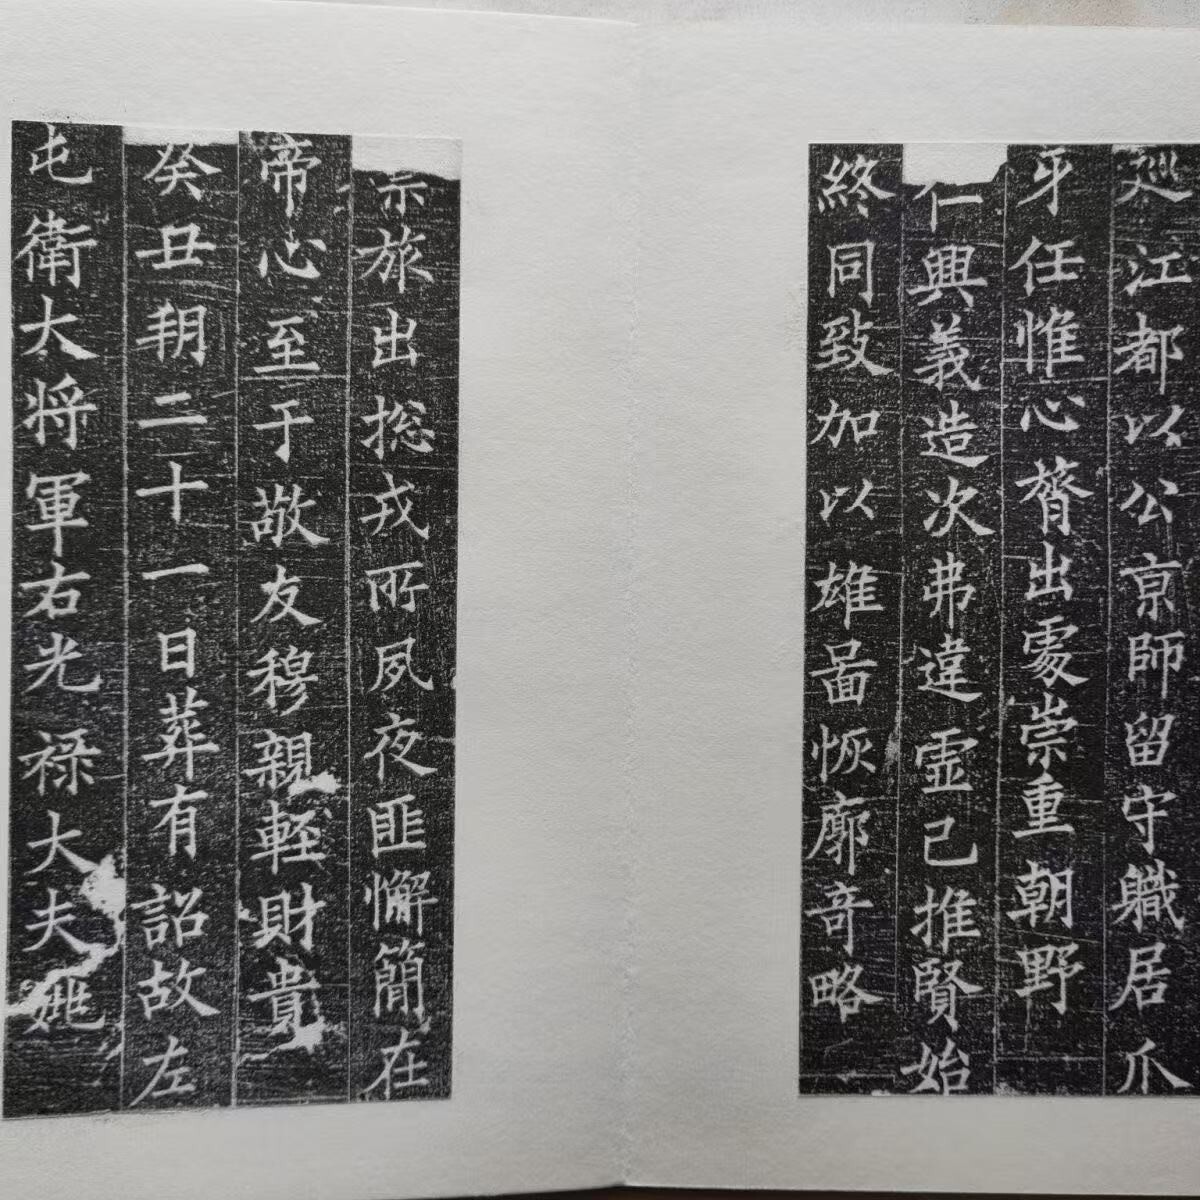 巡江都以公京師留守職居爪
牙任惟心膂出處崇重朝野
仁興義造次弗違虛己推賢始
終同致加以雄啚恢廓奇略
宗旅出揔戎所夙夜匪懈簡在
帝心至于敬友穆親輕財貴
癸丑朔二十一日葬有詔故左
屯衛大將軍右光祿大夫姚